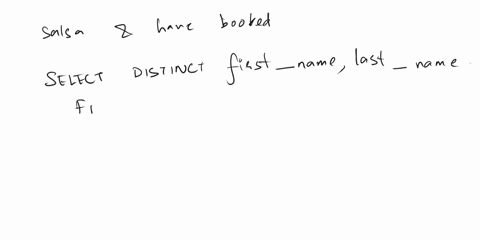 salsa & have booked
SELECT DISTINCT first_name, last_name
FI